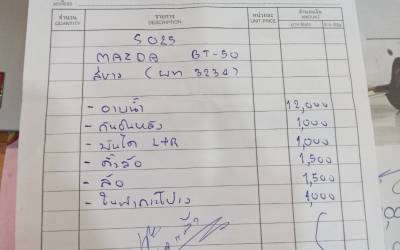 ADDRESS
จำนวน รายการ หน่วยละ จำนวนเงิน
QUANTITY DESCRIPTION UNIT PRICE AMOUNT
5025
MAZDA BT-50
สีขาว (ผท 3234)
- อาบน้ำ 12,000
- กันชนหลัง 1,000
- บันได L+R 1,000
- คิ้วล้อ 1,500
- ล้อ 1,500
- ในฝากะโปรง 1,000